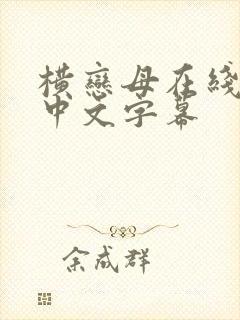 橫戀母在綫
中文字幕
余成群